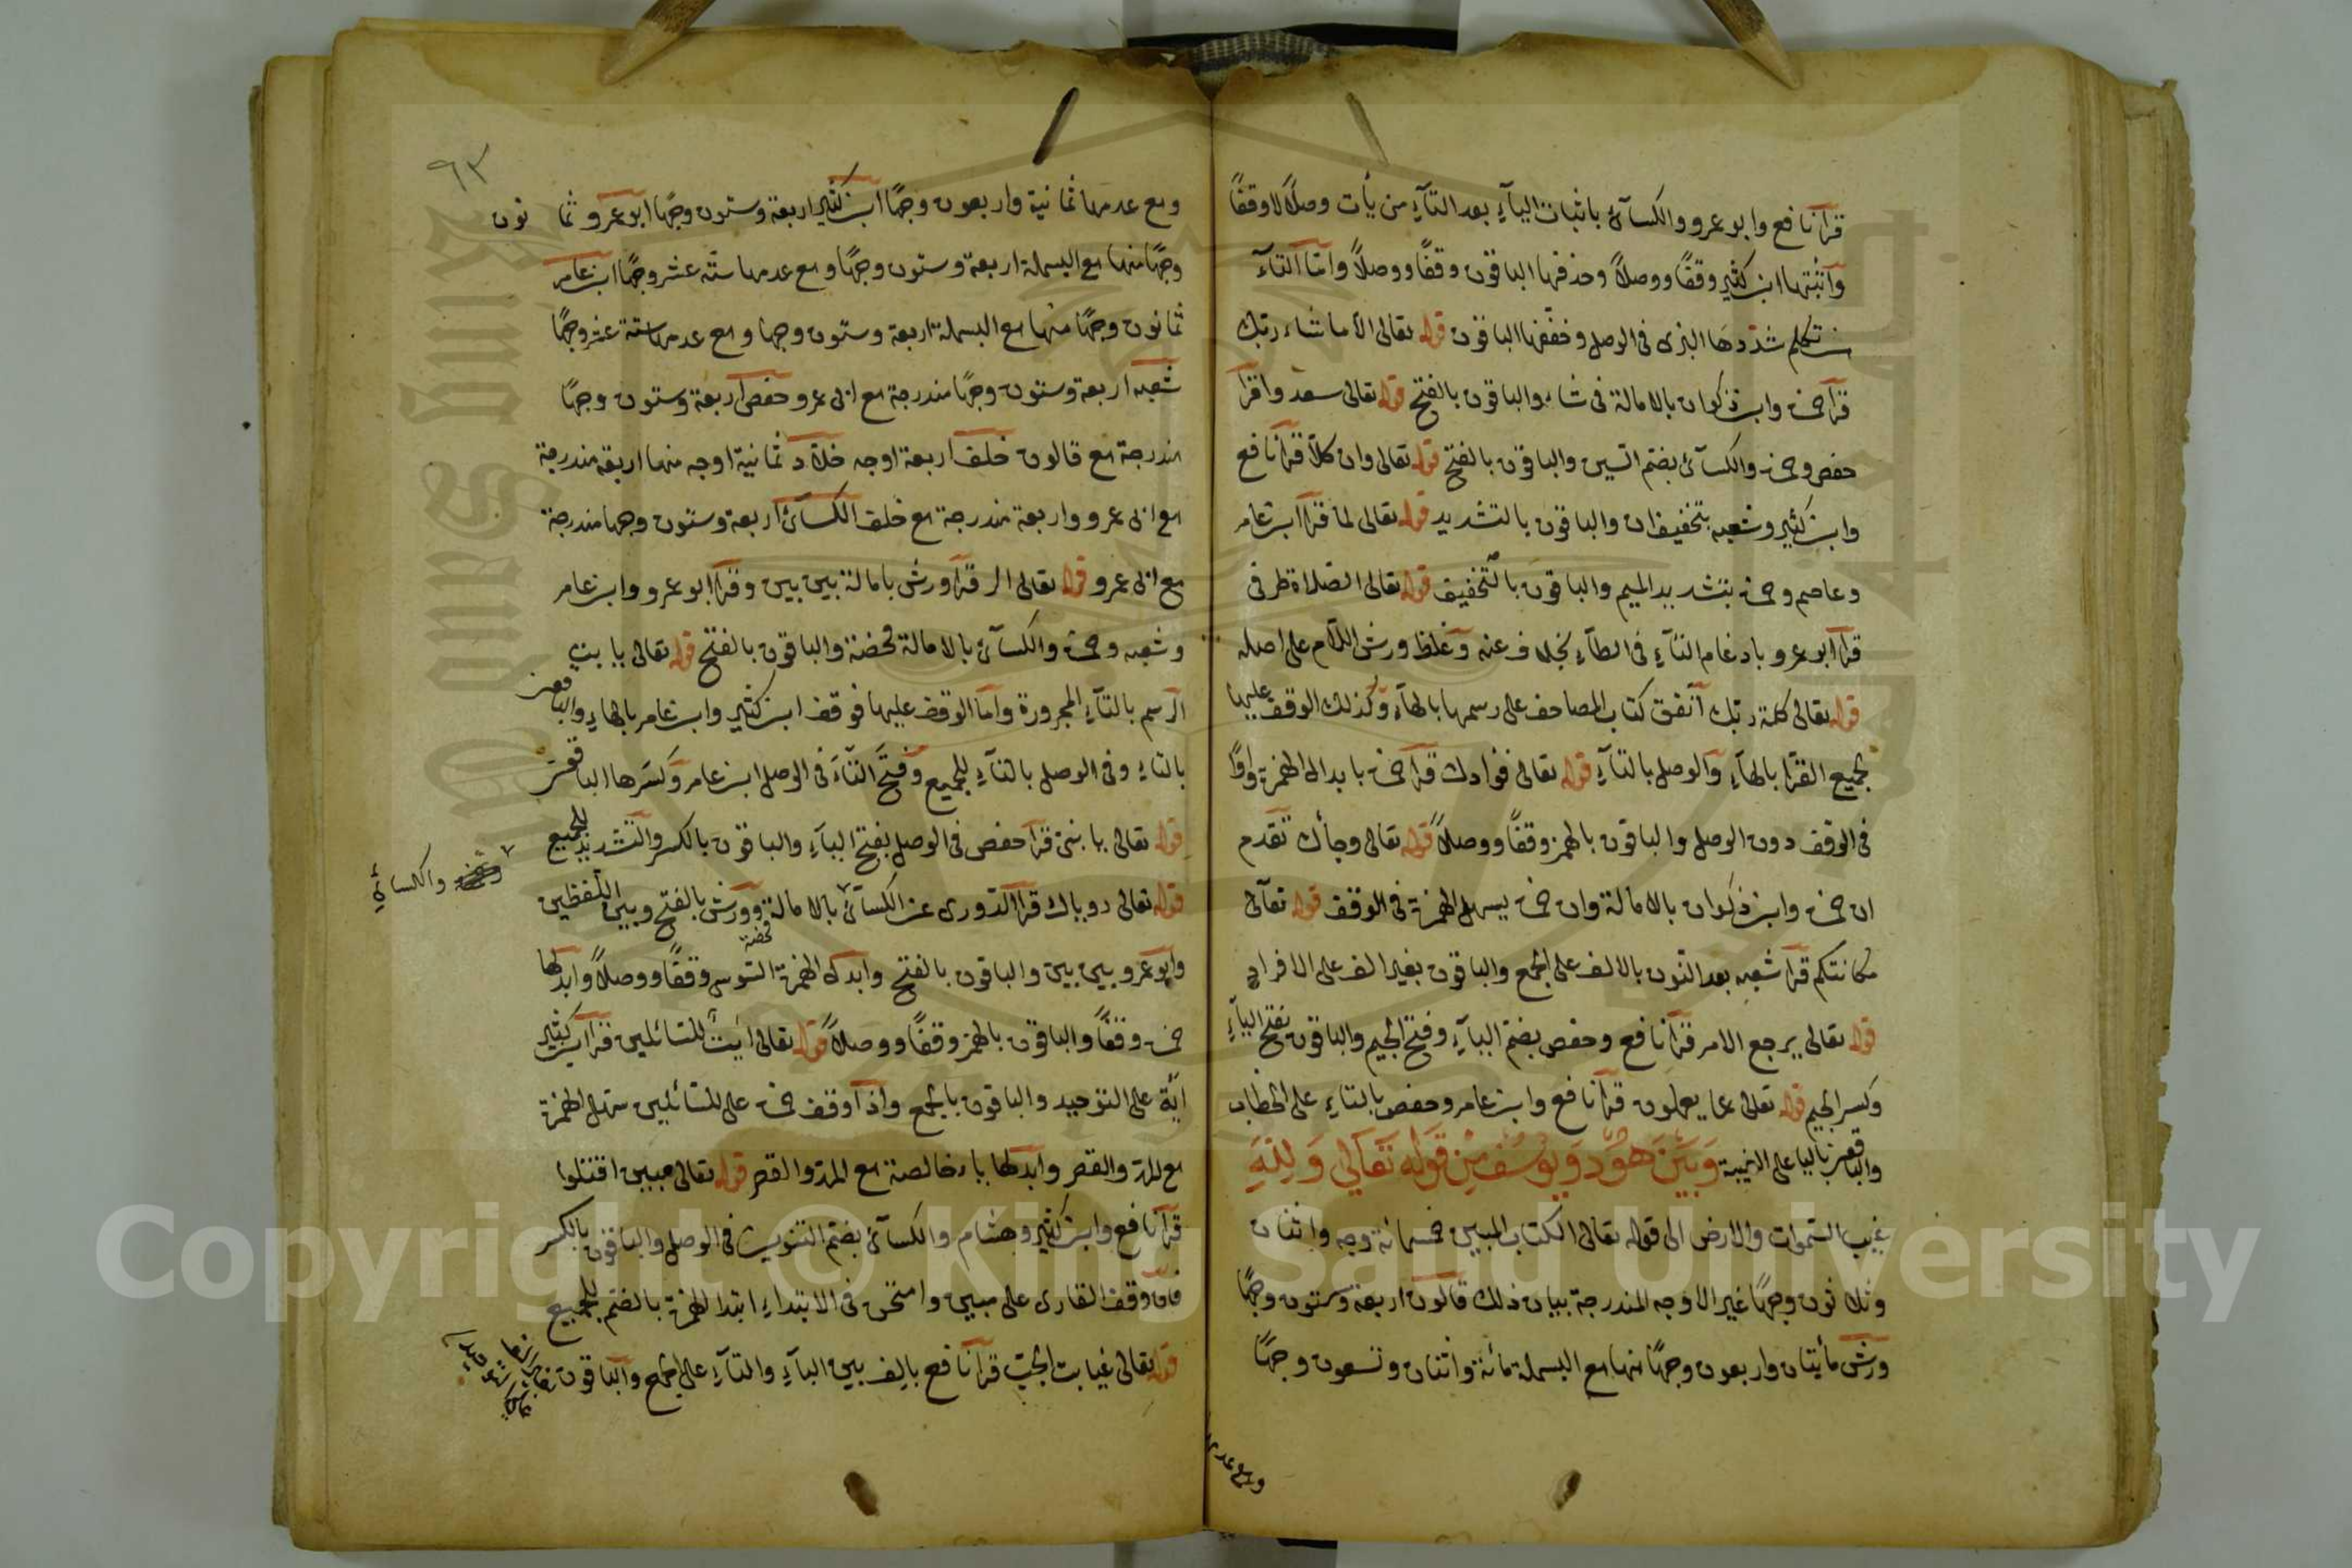 قرأ نافع وابو عمرو والكسآئ باثبات اليآءِ بعد التآءِ من يأت وصلاً لا وقفًا
وآثبتها ابن كثير وقفًا ووصلاً وحذفها الباقون وقفًا ووصلاً وامّا التآء
من تكلم شدّدها البزى فى الوصل وخفّفها الباقون قوله تعالى الا ما شاء ربك
قرأ حمزة وابن ذكوان بالامالة فى شاء والباقون بالفتح قوله تعالى سعدوا قرأ
حفص وحمزة والكسآئ بضم السين والباقون بالفتح قوله تعالى وان كلاّ قرأ نافع
وابن كثير وشعبه بتخفيف ان والباقون بالتشديد قوله تعالى لما قرأ ابن عامر
وعاصم وحمزة بتشديد الميم والباقون بالتخفيف قوله تعالى الصّلاة طرفى
قرأ ابو عمرو بادغام التآءِ فى الطآءِ بخلاف عنه وغلظ ورش اللام على اصله
قوله تعالى كلمة ربك اتفق كتاب المصاحف على رسمها بالهآء وكذلك الوقف عليها
لجميع القرا بالهآءِ والوصل بالتآءِ قوله تعالى فؤادك قرأ حمزة بابدال الهمزة واوًا
فى الوقف دون الوصل والباقون بالهمز وقفًا ووصلاً قوله تعالى وجآءك تقدم
ان حمزة وابن ذكوان بالامالة وان حمزة يسهل الهمزة فى الوقف قوله تعآلى
مكانتكم قرأ شعبه بعد النّون بالالف على الجمع والباقون بغير الف على الافراد
قوله تعالى يرجع الامر قرأ نافع وحفص بضم اليآءِ وفتح الجيم والباقون بفتح اليآءِ
وكسر الجيم قوله تعالى عما يعملون قرأ نافع وابن عامر وحفص بالتاءِ على الخطاب
والباقون باليا على الغيبة وَبَيْنَ هُود وَيُوسُف مِن قَولِه تَعَالى وَلِلّهِ
غيب السّموات والارض الى قوله تعالى الكتاب المبين خمسمائة وجه واثنان
وثلاثون وجهًا غير الاوجه المندرجة بيان ذلك قالون اربعة وستون وجهًا
ورش مائتان واربعون وجهًا منها مع البسملة مائة واثنان وتسعون وجهًا
ومع عدمها
٩٣
ومع عدمها ثمانية واربعون وجهًا ابن كثير اربعة وستون وجهًا ابو عمرو ثما نون
وجهًا منها مع البسملة اربعة وستون وجهًا ومع عدمها ستّه عشر وجهًا ابن عامر
ثمانون وجهًا منها مع البسملة اربعة وستّون وجها ومع عدمها ستة عشر وجهًا
شعبه اربعة وستون وجهًا مندرجة مع ابى عمرو حفص اربعة وستون وجهًا
مندرجة مع قالون خلف اربعة اوجه خلاّد ثمانية اوجه منها اربعة مندرجة
مع ابى عمرو واربعة مندرجة مع خلف الكسآئ اربعة وستون وجها مندرجة
مع ابى عمرو قوله تعالى الر قرأ ورش بامالة بين بين وقرأ ابو عمرو وابن عامر
وشعبه وحمزة والكسآئ بالامالة محضة والباقون بالفتح قوله تعالى يا بت
الرسم بالتآءِ المجرورة وامّا الوقف عليها فوقف ابن كثير وابن عامر بالهاءِ والباقون
بالتاءِ وفى الوصل بالتآءِ للجميع وفتح التآءَ فى الوصل ابن عامر وكسرها الباقون
قوله تعالى يا بنىّ قرأ حفص فى الوصل بفتح اليآءِ والباقون بالكسر والتشديد للجميع
قوله تعالى روياك قرأ الدّورى عن الكسآئ بالامالة محضة وورش بالفتح وبين اللفظين
والكسائي
وابو عمرو بين بين والباقون بالفتح وابدل الهمزة السّوسى وقفًا ووصلاً وابدلها
حمزة وقفاً والباقون بالهمز وقفًا ووصلاً قوله تعالى ايتٌ للسّائلين قرأ ابن كثير
ايّة على التوحيد والباقون بالجمع واذا وقف حمزة على للسّائلين سهل الهمزة
مع المد والقصر وابدلها ياء خالصة مع المدّ والقصر قوله تعالى مبين اقتلوا
قرأ نافع وابن كثير وهشام والكسآئ بضم التنوين فى الوصل والباقون بالكسر
فان وقف القارى على مبين وامتحن فى الابتداءِ ابتدا الهمزة بالضّم للجميع
قوله تعالى غيابت الجبّ قرأ نافع بالف بين البآءِ والتآءِ على الجمع والباقون بغير الف
على التوحيد
Copyright © King Saud University